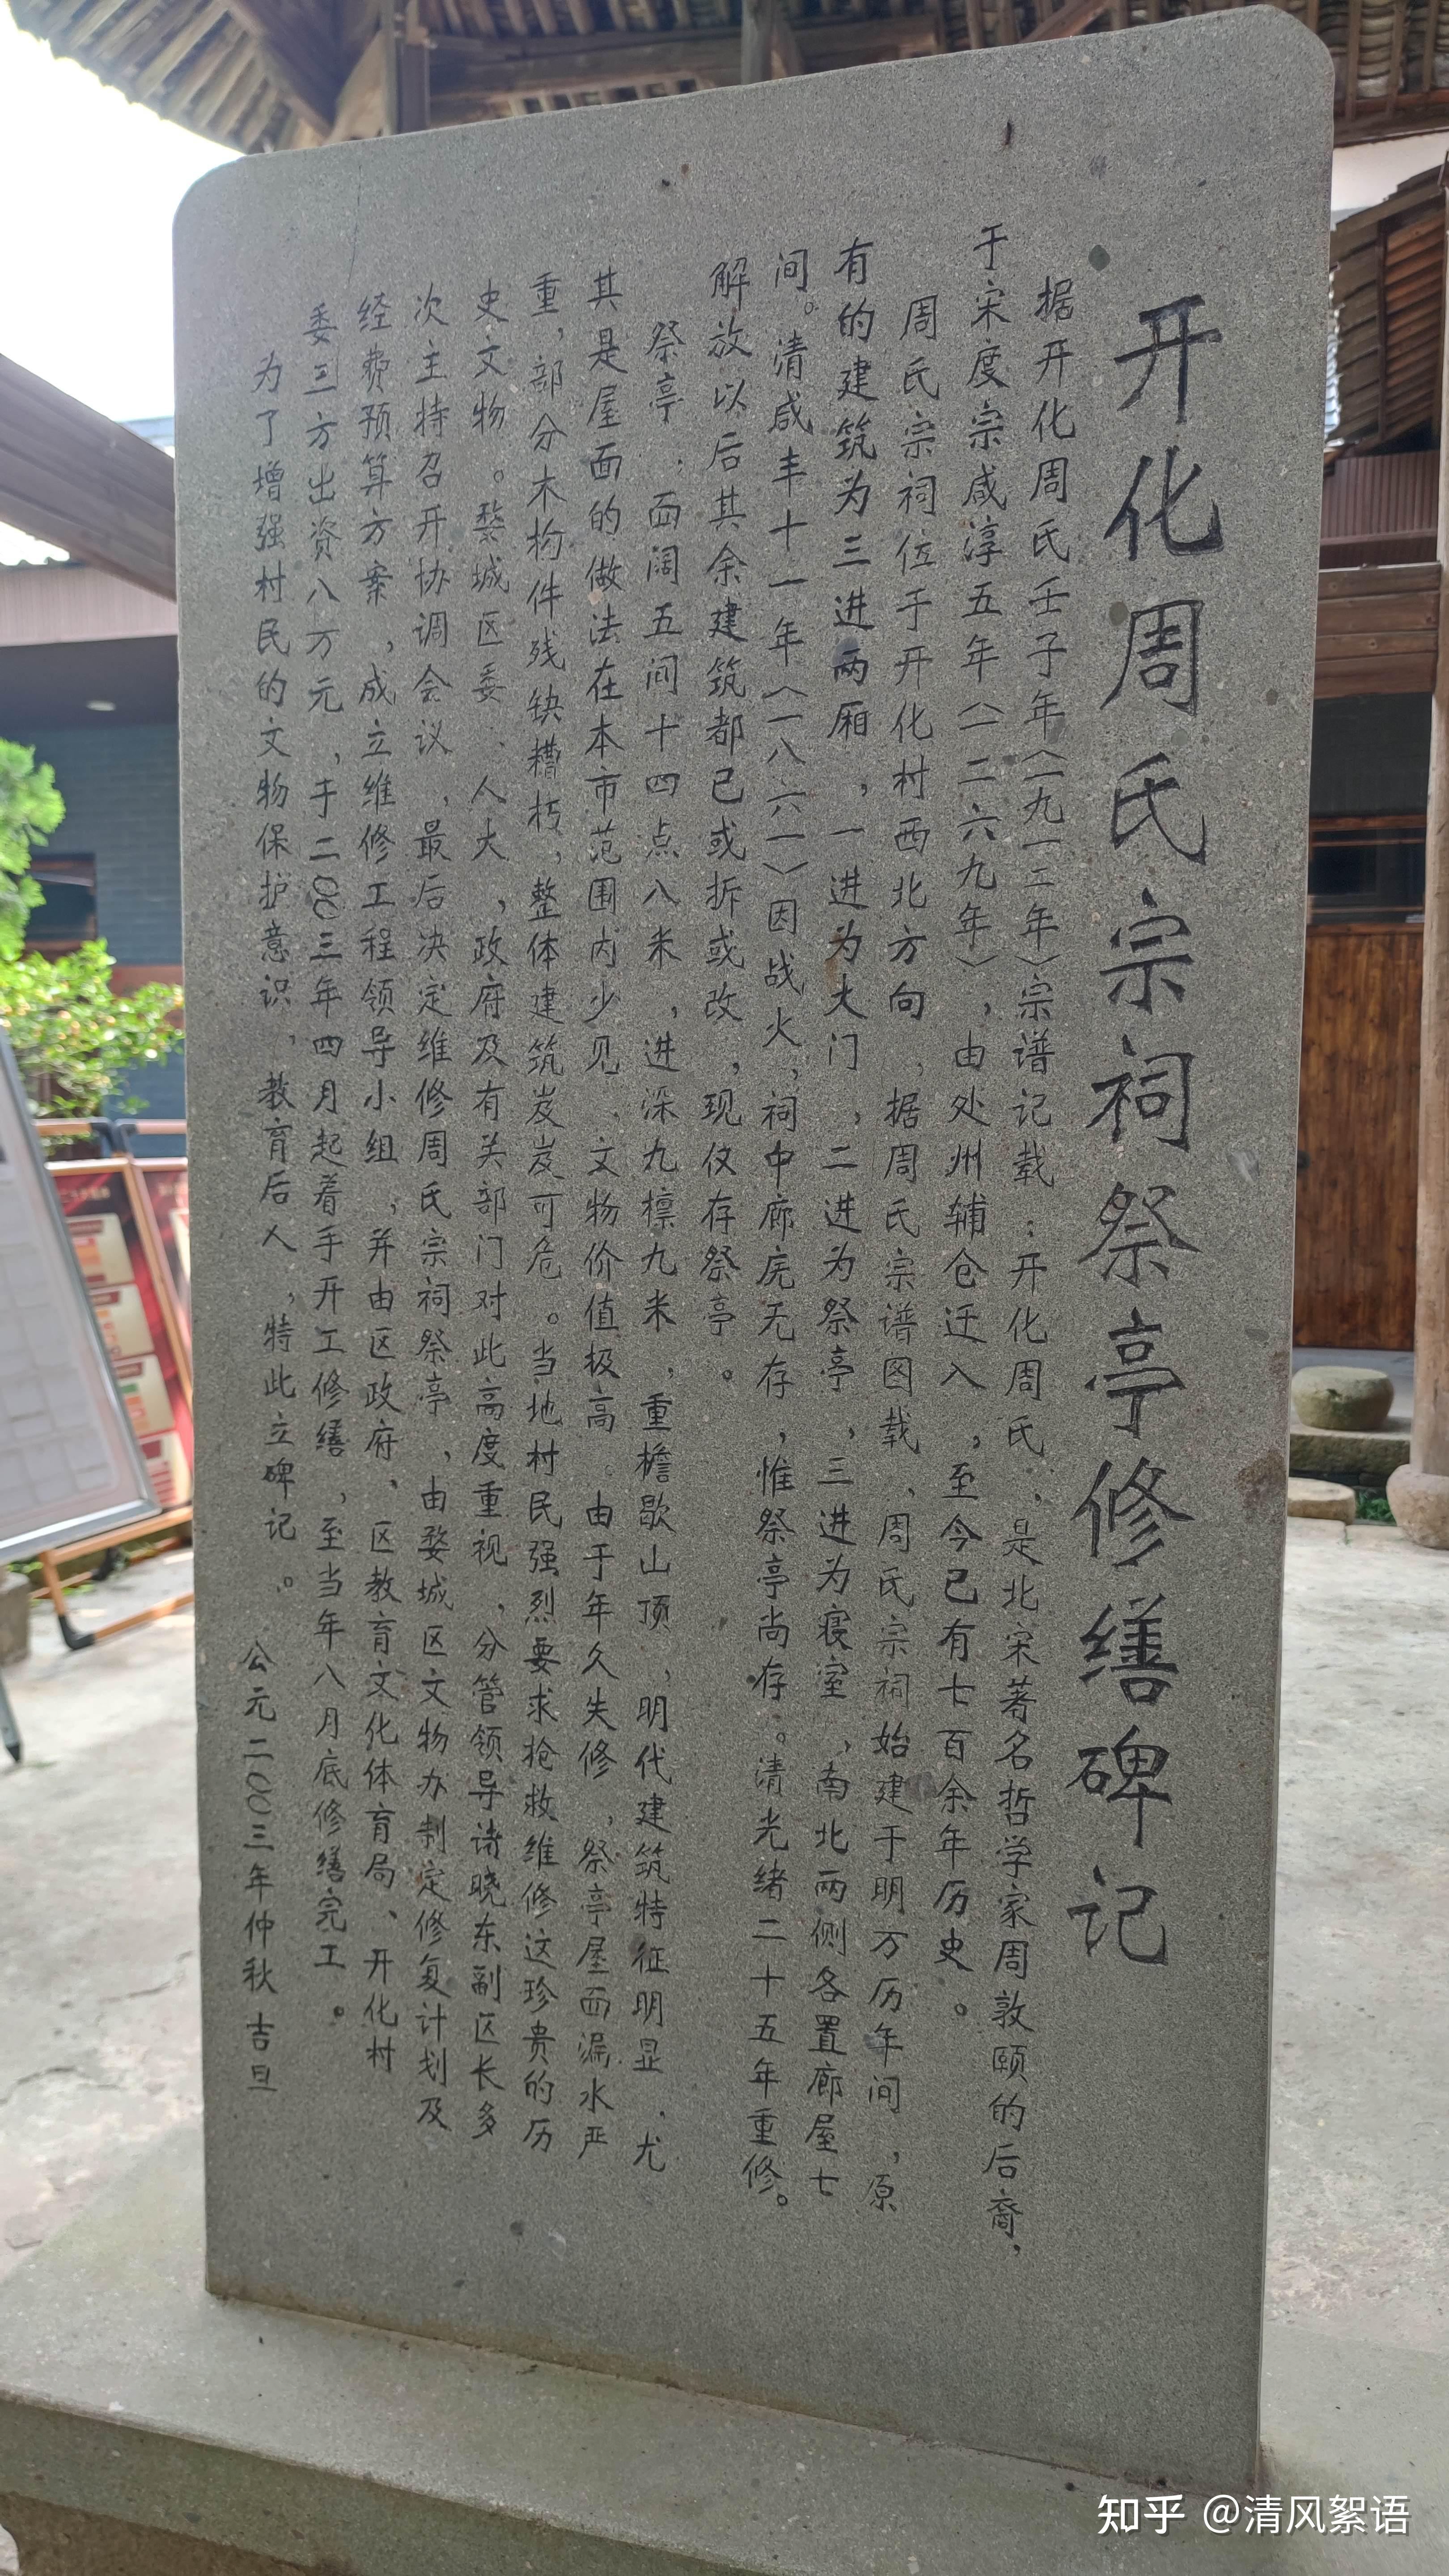 开化周氏宗祠祭亭修缮碑记
据开化周氏壬子年（一九一二年）宗谱记载：开化周氏，是北宋著名哲学家周敦颐的后裔，
于宋度宗咸淳五年（一二六九年），由处州辅仓迁入，至今已有七百余年历史。
周氏宗祠位于开化村西北方向，据周氏宗谱图载，周氏宗祠始建于明万历年间，原
有的建筑为三进两厢，一进为大门，二进为祭亭，三进为寝室，南北两侧各置廊屋七
间。清咸丰十一年（一八六一）因战火，祠中廊庑无存，惟祭亭尚存。清光绪二十五年重修。
解放以后其余建筑都已或拆或改，现仅存祭亭。
祭亭：面阔五间十四点八米，进深九檩九米，重檐歇山顶，明代建筑特征明显，尤
其是屋面的做法在本市范围内少见，文物价值极高。由于年久失修，祭亭屋面漏水严
重，部分木构件残缺糟朽，整体建筑岌岌可危。当地村民强烈要求抢救维修这珍贵的历
史文物。婺城区委、人大，政府及有关部门对此高度重视，分管领导诸晓东副区长多
次主持召开协调会议，最后决定维修周氏宗祠祭亭，由婺城区文物办制定修复计划及
经费预算方案，成立维修工程领导小组，并由区政府、区教育文化体育局、开化村
委三方出资八万元，于二〇〇三年四月起着手开工修缮，至当年八月底修缮完工。
为了增强村民的文物保护意识，教育后人，特此立碑记。
公元二〇〇三年仲秋吉旦
知乎 @清风絮语